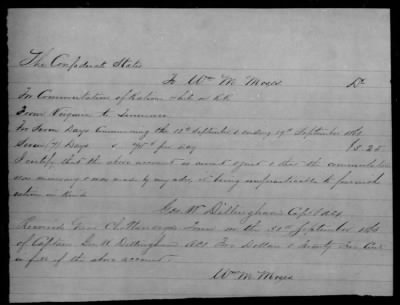 The Confederate States
To Wm M. Moses Dr
For Commutation of Rations while on R.R.
From Virginia to Tennessee
For Seven Days Commencing the 12th September & ending 19th September 186
Seven (7) Days @ 75c per day $ 5 25
I certify that the above account is correct & just & that the commutation
was necessary & was made by my order, it being impracticable to furnish
rations in kind
Geo. W. Dillingham Capt & ACS
Received from Chattanooga Tenn on the 21st September 186
of Captain Geo. W. Dillingham ACS Five Dollars & Twenty Five Cents
in full of the above account.
Wm M. Moses